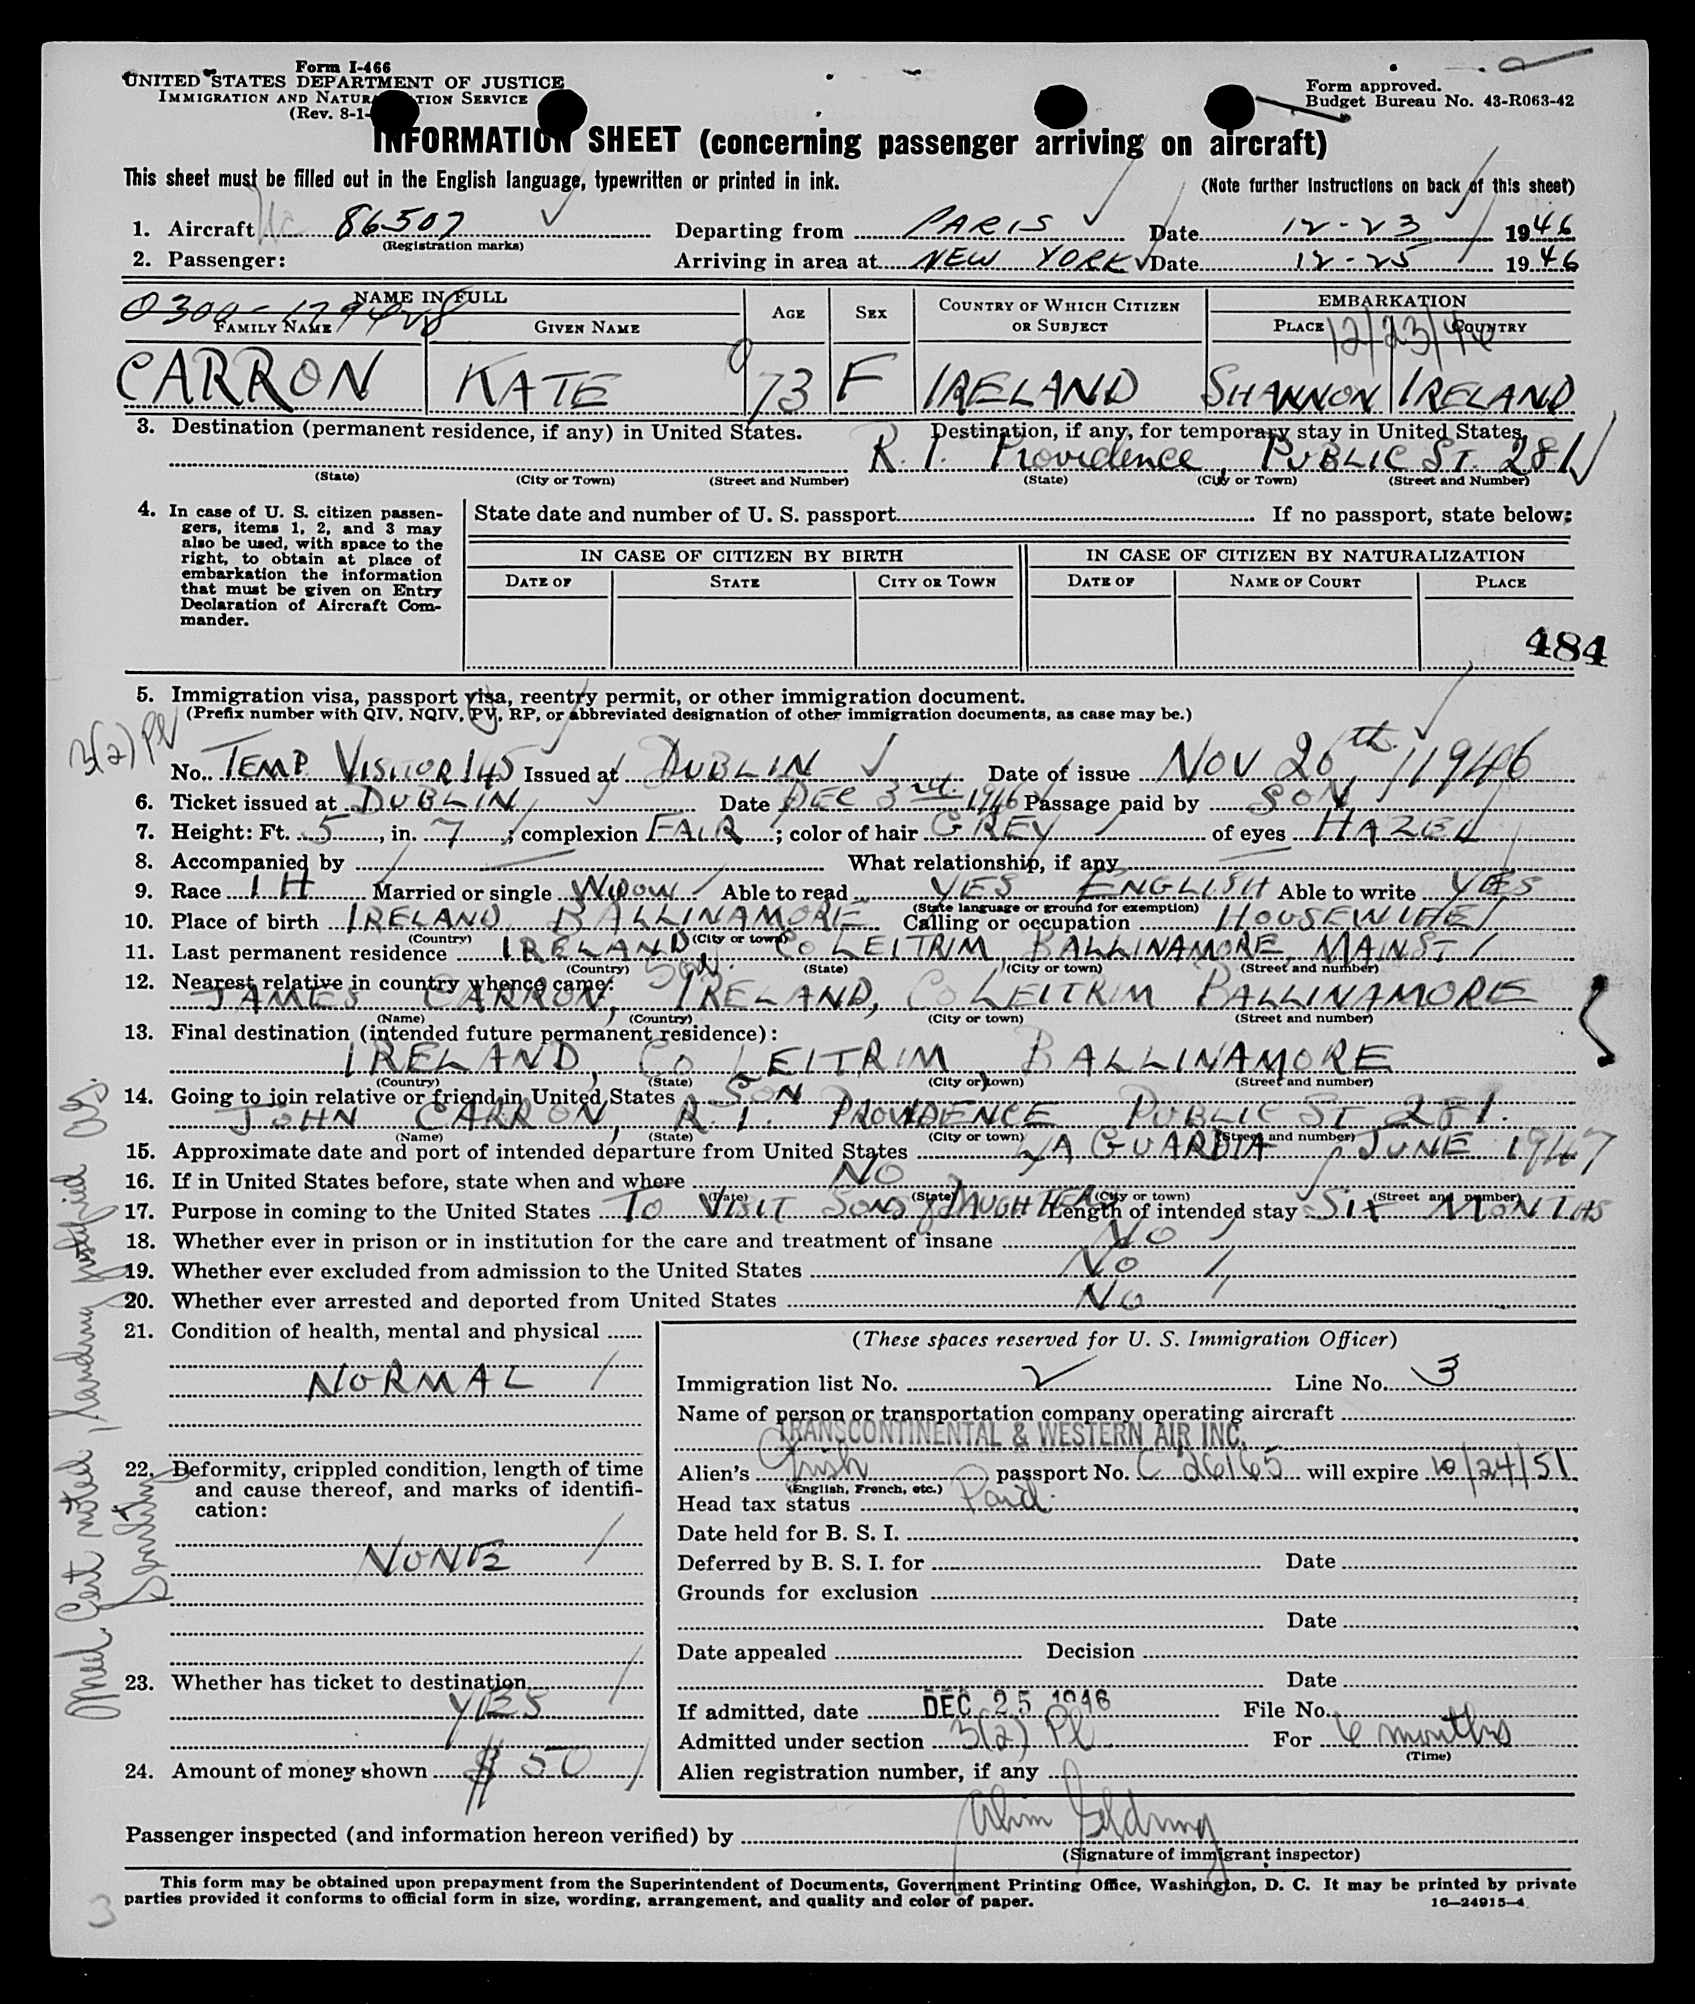 Form I-466
UNITED STATES DEPARTMENT OF JUSTICE
IMMIGRATION AND NATURALIZATION SERVICE
(Rev. 8-1-
Form approved.
Budget Bureau No. 43-R063-42
INFORMATION SHEET (concerning passenger arriving on aircraft)
This sheet must be filled out in the English language, typewritten or printed in ink.
(Note further instructions on back of this sheet)
1. Aircraft Nc 86507 Departing from PARIS Date 12-23 1946
(Registration marks)
2. Passenger: Arriving in area at NEW YORK Date 12-25 1946
0300-179428
NAME IN FULL AGE SEX COUNTRY OF WHICH CITIZEN OR SUBJECT EMBARKATION
FAMILY NAME GIVEN NAME PLACE COUNTRY
12/23/46
CARRON KATE 73 F IRELAND SHANNON IRELAND
3. Destination (permanent residence, if any) in United States. Destination, if any, for temporary stay in United States
R.I. Providence, PUBLIC ST. 281
(State) (City or Town) (Street and Number) (State) (City or Town) (Street and Number)
4. In case of U. S. citizen passengers, items 1, 2, and 3 may also be used, with space to the right, to obtain at place of embarkation the information that must be given on Entry Declaration of Aircraft Commander.
State date and number of U. S. passport If no passport, state below:
IN CASE OF CITIZEN BY BIRTH IN CASE OF CITIZEN BY NATURALIZATION
DATE OF STATE CITY OR TOWN DATE OF NAME OF COURT PLACE
484
5. Immigration visa, passport visa, reentry permit, or other immigration document.
(Prefix number with QIV, NQIV, PV, RP, or abbreviated designation of other immigration documents, as case may be.)
3(2) Pl
No. TEMP. VISITOR 145 Issued at DUBLIN Date of issue NOV 20th, 1946
6. Ticket issued at DUBLIN Date DEC 3rd. 1946 Passage paid by SON
7. Height: Ft. 5, in. 7; complexion FAIR; color of hair GREY of eyes HAZEL
8. Accompanied by — What relationship, if any —
9. Race IH Married or single WIDOW Able to read YES ENGLISH Able to write YES
(State language or ground for exemption)
10. Place of birth IRELAND BALLINAMORE Calling or occupation HOUSEWIFE
(Country) (City or town)
11. Last permanent residence IRELAND CO LEITRIM, BALLINAMORE, MAIN ST
(Country) (State) (City or town) (Street and number)
12. Nearest relative in country whence came: Son.
JAMES CARRON, IRELAND, CO LEITRIM BALLINAMORE
(Name) (Country) (City or town) (Street and number)
13. Final destination (intended future permanent residence):
IRELAND, CO LEITRIM, BALLINAMORE
(Country) (State) (City or town) (Street and number)
14. Going to join relative or friend in United States SON
JOHN CARRON, R.I. PROVIDENCE PUBLIC ST 281.
(Name) (State) (City or town) (Street and number)
15. Approximate date and port of intended departure from United States LA GUARDIA JUNE 1947
16. If in United States before, state when and where NO
(Date) (State) (City or town) (Street and number)
17. Purpose in coming to the United States TO VISIT SONS & DAUGHTERS Length of intended stay SIX MONTHS
18. Whether ever in prison or in institution for the care and treatment of insane NO
19. Whether ever excluded from admission to the United States NO
20. Whether ever arrested and deported from United States NO
21. Condition of health, mental and physical
NORMAL
22. Deformity, crippled condition, length of time and cause thereof, and marks of identification:
NONE
23. Whether has ticket to destination
YES
24. Amount of money shown $50
(These spaces reserved for U. S. Immigration Officer)
Immigration list No. 2 Line No. 3
Name of person or transportation company operating aircraft
TRANSCONTINENTAL & WESTERN AIR INC.
Alien's Irish passport No. C 26165 will expire 10/24/51
(English, French, etc.)
Head tax status Paid.
Date held for B. S. I.
Deferred by B. S. I. for Date
Grounds for exclusion
Date
Date appealed Decision
Date
If admitted, date DEC 25 1946 File No.
Admitted under section 3(2) Pl For 6 months
(Time)
Alien registration number, if any
Passenger inspected (and information hereon verified) by
(Signature of immigrant inspector)
This form may be obtained upon prepayment from the Superintendent of Documents, Government Printing Office, Washington, D. C. It may be printed by private
parties provided it conforms to official form in size, wording, arrangement, and quality and color of paper.
16—24915-4
3
Med. Cert noted, landing justified